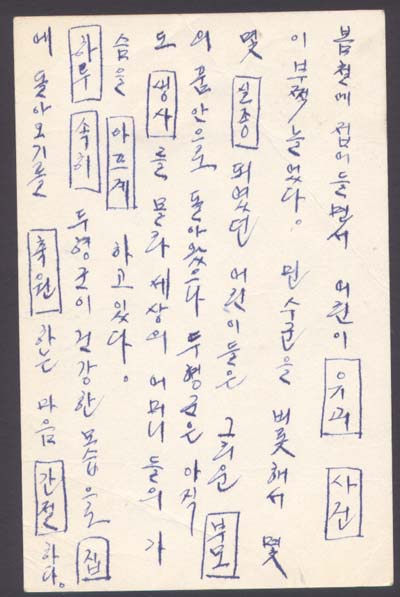 봄철에 접어들면서 어린이 유괴 사건
이 부쩍 늘었다. 민수군을 비롯해서 몇
몇 실종 되었던 어린이들은 그리운 부모
의 품안으로 돌아왔으나 두형군은 아직
도 생사를 몰라 세상의 어머니 들의 가
슴을 아프게 하고 있다.
하루 속히 두형군이 건강한 모습으로 집
에 돌아오기를 축원 하는 마음 간절 하다.